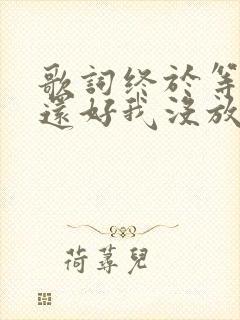 歌詞終於等
還好我沒放
荷蕁兒